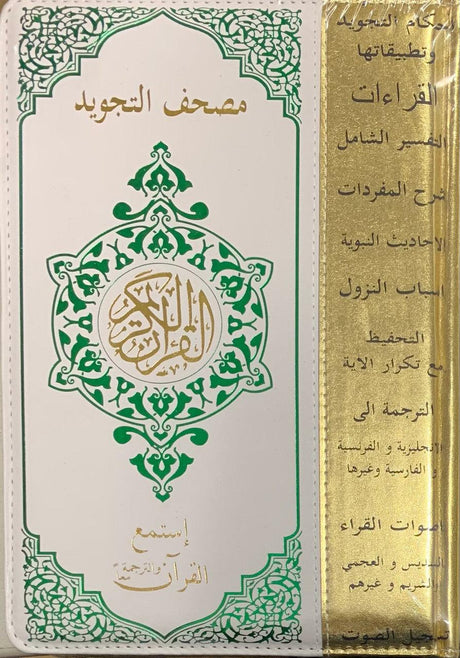 مصحف التجويد
القرآن الكريم
إستمع
القرآن والترجمة معاً
احكام التجويد
وتطبيقاتها
القراءات
التفسير الشامل
شرح المفردات
الاحاديث النبوية
اسباب النزول
التحفيظ
مع تكرار الآية
الترجمة الى
الانجليزية و الفرنسية
و الفارسية وغيرها
اصوات القراء
السديس و العجمي
والشريم و غيرهم
تسجيل الصوت